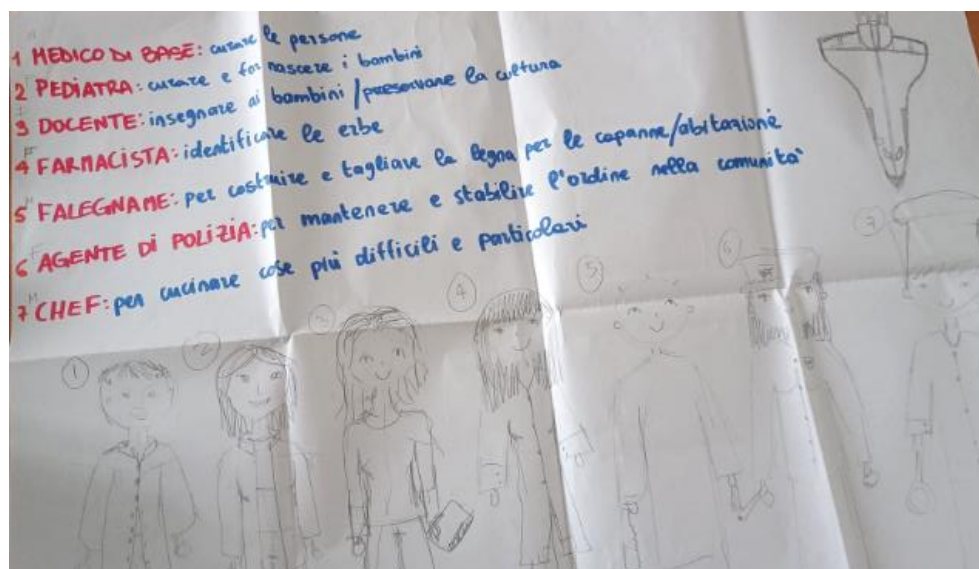 1 MEDICO DI BASE: curare le persone
2 PEDIATRA: curare e far nascere i bambini
3 DOCENTE: insegnare ai bambini / preservare la cultura
4 FARMACISTA: identificare le erbe
5 FALEGNAME: per costruire e tagliare la legna per le capanne/abitazione
6 AGENTE DI POLIZIA: per mantenere e stabilire l'ordine nella comunità
7 CHEF: per cucinare cose più difficili e particolari
1
2
3
4
5
6
7